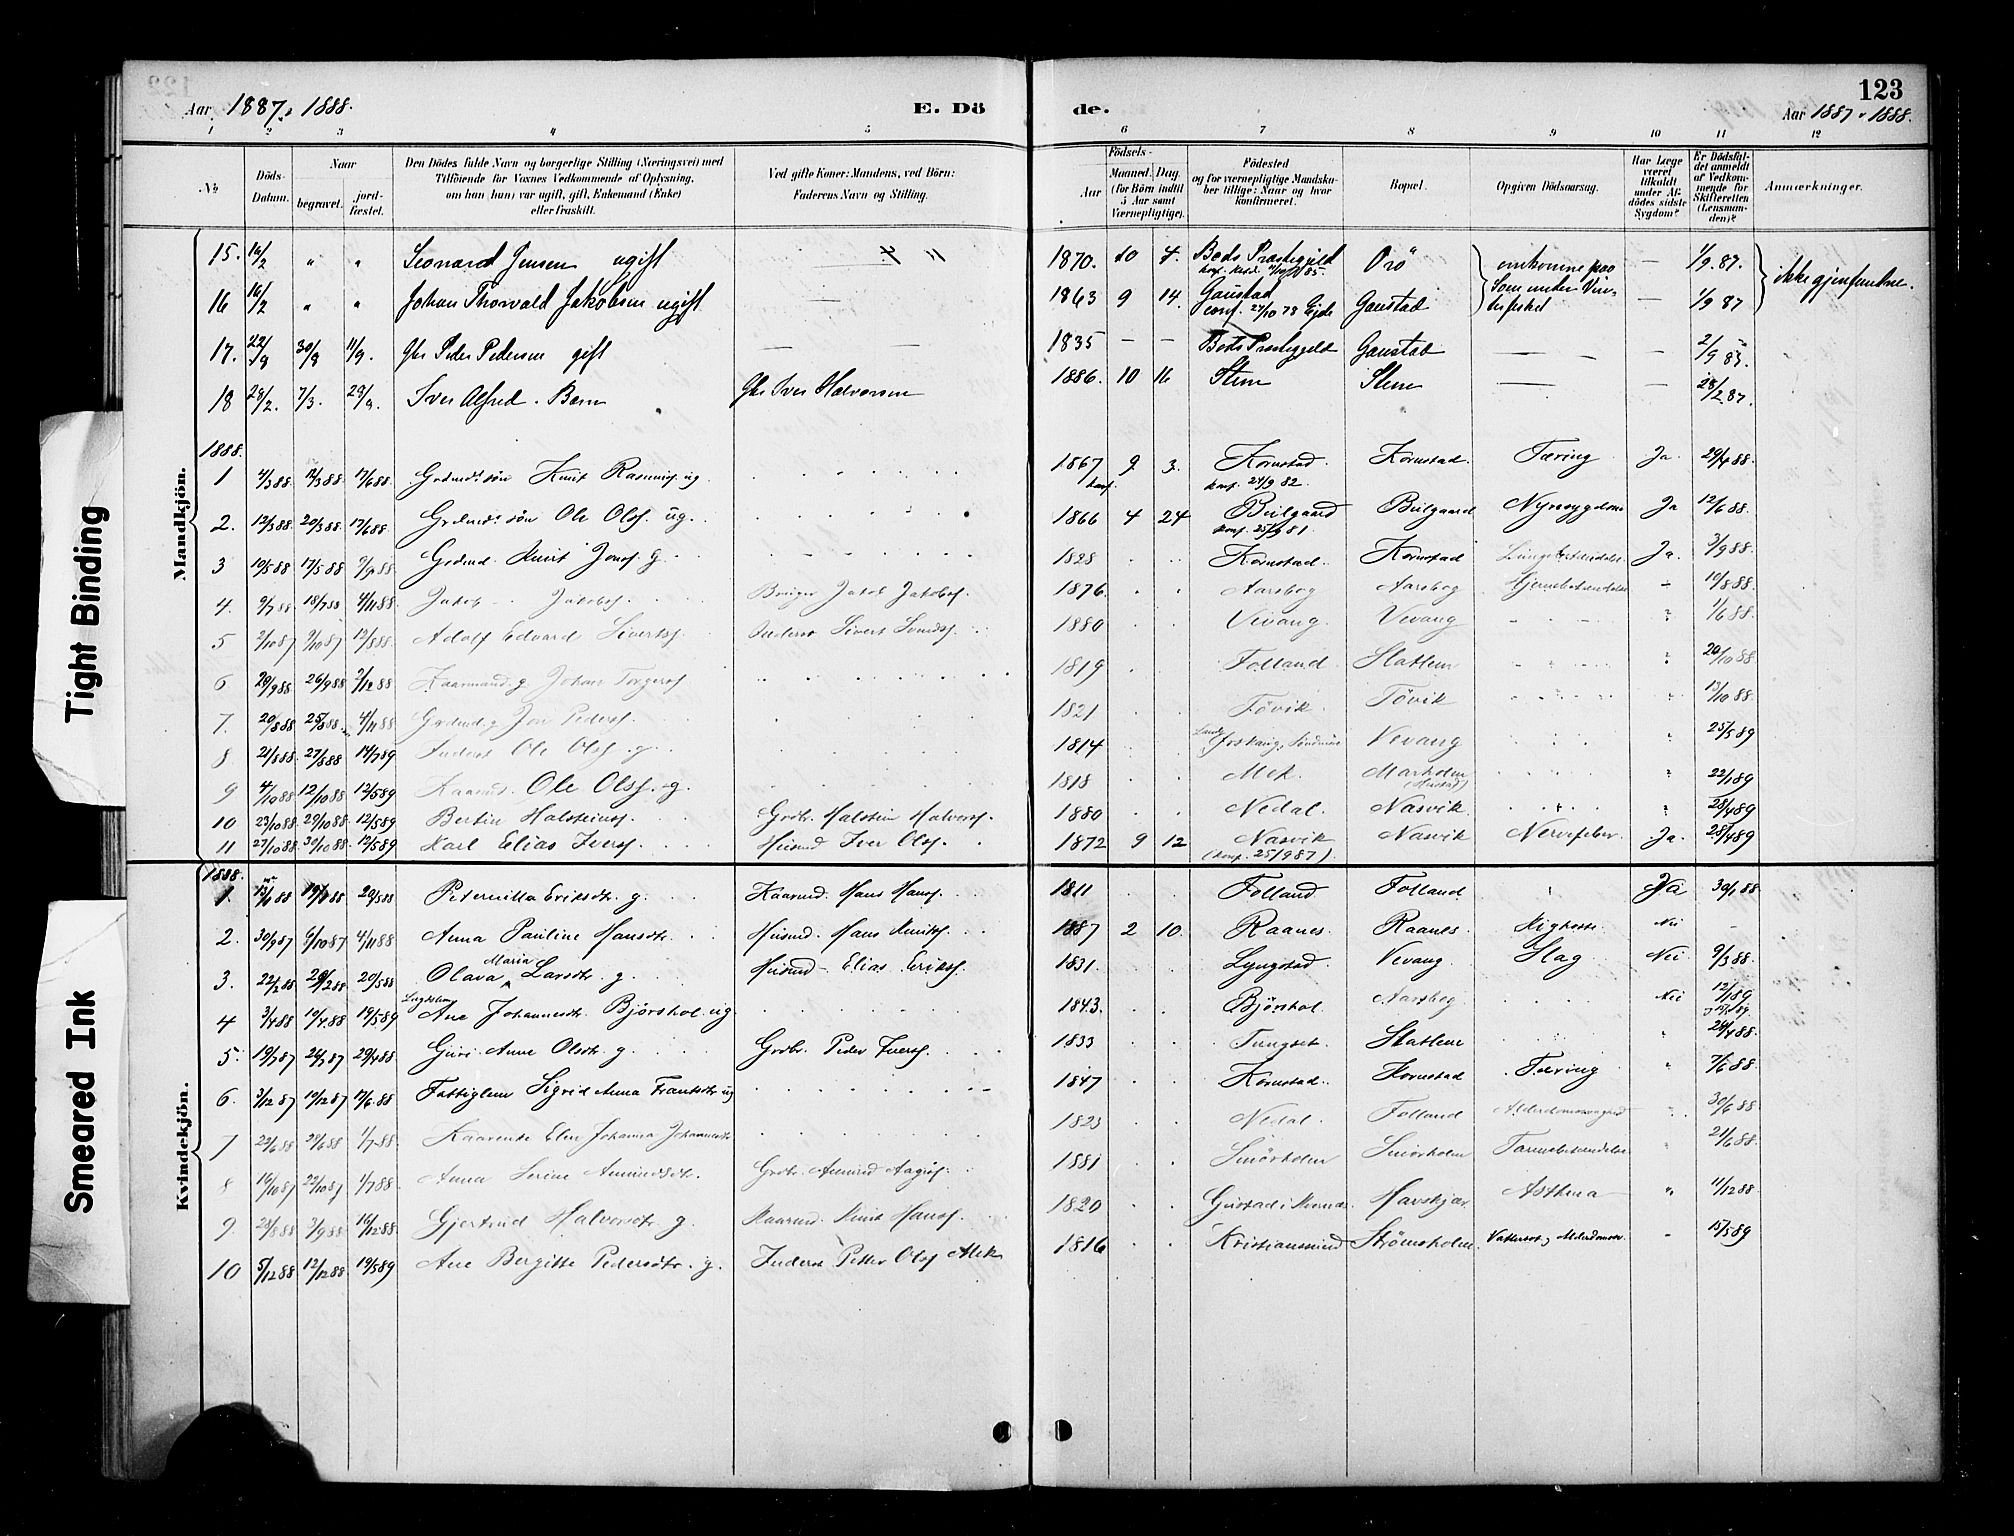 Aar 1887 & 1888. E. Dö de. Aar 1887 & 1888. 123
1 2 3 4 5 6 7 8 9 10 11 12
No Döds-Datum. Naar begravet. jord-fæstet. Den Dödes fulde Navn og borgerlige Stilling (Næringsvei) med Tilföiende for Voxnes Vedkommende af Oplysning, om han (hun) var ugift, gift, Enkemand (Enke) eller fraskilt. Ved gifte Koner: Mandens, ved Börn: Faderens Navn og Stilling. Aar Födsels- Maaned. Dag. (for Börn indtil 5 Aar samt Værnepligtige). Födested og for værnepligtige Mandskaber tillige: Naar og hvor konfirmeret. Bopæl. Opgiven Dödsaarsag. Har Læge været tilkaldt under Afdödes sidste Sygdom? Er Dödsfaldet anmeldt af Vedkommende for Skifteretten (Lensmanden)? Anmærkninger.
Mandkjön.
15. 16/2 " " Leonard Jensen ugift 1870. 10 4. Bods Præstegjeld Orö omkomne paa — 1/9 87. ikke gjenfundne.
16 16/2 " " Johan Thorvald Jakobsen ugift — 1863 9 14. Gaustad conf. 27/10 78 Ejde Gaustad — 1/9 87
17. 22/8 30/8 11/9. Peder Pedersen gift — — 1835 — — Bods Præstegjeld Gaustad — —
18 28/2. 7/3. Iver Alfred. Barn Iver Halvorsen 1886. 10 16 Stene Stene — — 28/2 87.
1888.
1 4/3 88 12/3 88 17/6 88 Grdmds søn Knut Rasmuss. ug 1867 9 3. Kornstad. konf. 24/9 82. Kornstad. Tæring Ja. 29/4 88.
2. 12/3 88 20/3 88 17/6 88 Grdmds søn Ole Olss. ug. 1866 4 24 Bulgaard konf. 25/9 81. Bulgaard Nyresygdom Ja 12/6 88.
3 10/5 88 17/5 88 9/9 88 Grdmd. Knut Jonss. g. 1828 Kornstad. Kornstad Lungebetændelse Ja. 3/9 88.
4. 9/7 88 18/7 88 4/11 88 Jakob Jakobs. Bruger Jakob Jakobs. 1876. Aarsbog Aarsbog Hjernebetændelse - 10/8 88.
5 2/10 87 9/10 87 12/8 88 Adolf Edvard Sivertss. Inderst Sivert 1880 Vevang Vevang 1/6 88.
6 20/9 88 26/9 88 2/12 88 Kaarmand g. Johan Torgerss. 1819 Folland. Statlem 20/10 88.
7. 20/8 88 25/8 88 4/11 88 Grdmd g Jon Peders. 1821 Tövik Tövik 13/10 88.
8 21/8 88 27/8 88 14/7 89 Inderst Ole Olss. g. 1814 Vevang 25/5 89
9 4/10 88 12/10 88 12/5 89 Kaarmd. Ole Olss. g. 1818 Mek. Marholm 22/1 89
10 23/10 88 29/10 88 12/5 89 Bertin Halsteins. Grdbr. Halstein Halvors. 1880 Nedal. Nasvik 28/4 89
11 27/10 88 30/10 88 12/5 89 Karl Elias Iverss. Husmd Iver Olss. 1872 9 12 Nasvik (konf. 25/9 87). Nasvik Nervefeber. Ja. 28/4 89
Kvindekjön.
1888.
1. 13/1 88 19/1 88 20/5 88 Peternilla Eriksdtr. g. Kaarmd. Hans Hanss. 1811 Folland Folland. Ja 30/1 88
2. 30/9 87 6/10 87 4/11 88 Anna Pauline Hansdtr. Husmd. Hans Knuts. 1887 2 10. Raanes. Raanes. Kighoste. Nei
3. 22/2 88 29/2 88 20/5 88 Olava Maria Larsdtr. g. Husmd Elias Eriks. 1831. Lyngstad Vevang. Slag Nei 9/3 88.
4 3/4 88 10/4 88 19/5 89 Lægdslem Ane Johannesdtr. Bjørshol. ug. 1843. Bjørshol. Aarsbog. Nei 12/1 89
5. 19/7 87 26/7 87 29/4 88 Guri Anne Olsdtr. g. Grdbr. Peder Iverss. 1833 Tungset. Statlem 24/4 88.
6. 3/12 87 10/12 87 17/6 88 Fattiglem Sigrid Anna Frantsdtr ug 1847 Kornstad. Kornstad Tæring 7/6 88.
7 22/6 88 28/6 88 1/7 88 Kaarenke Elen Johanna Johannesdtr 1823 Nedal. Folland Alderdomssvaghed 30/6 88
8 16/10 87 22/10 87 1/7 88 Anna Serine Amundsdtr. Grdbr. Amund 1881 Smörholm Smörholm Tarmebetændelse 21/6 88.
9. 28/8 88 3/9 88 16/12 88. Gjertrud Halvorsdtr. g. Kaarmd. Knut Hanss. 1820 Havskjær Asthma 11/12 88
10 5/12 88 12/12 88 19/5 89 Ane Bergitte Pedersdtr. g. Inderst Petter Olss Mek 1816 Kristianssund Strömsholm Vattersot, Alderdomsv. 15/5 89
Tight Binding
Smeared Ink